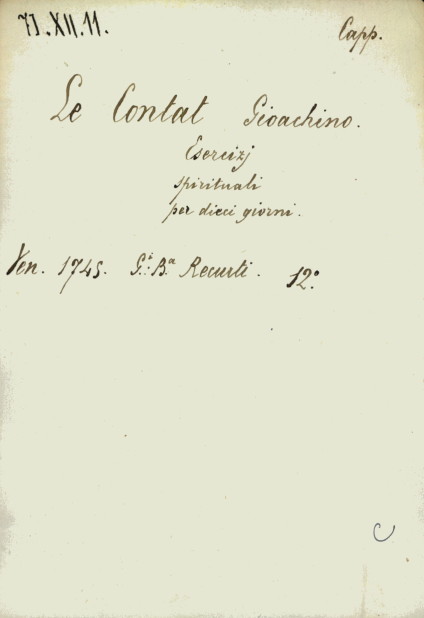 71.XII.11.
Capp.
Le Contat Gioachino.
Esercizj
spirituali
per dieci giorni.
Ven. 1745. G: B.a Recurti. 12.°
C